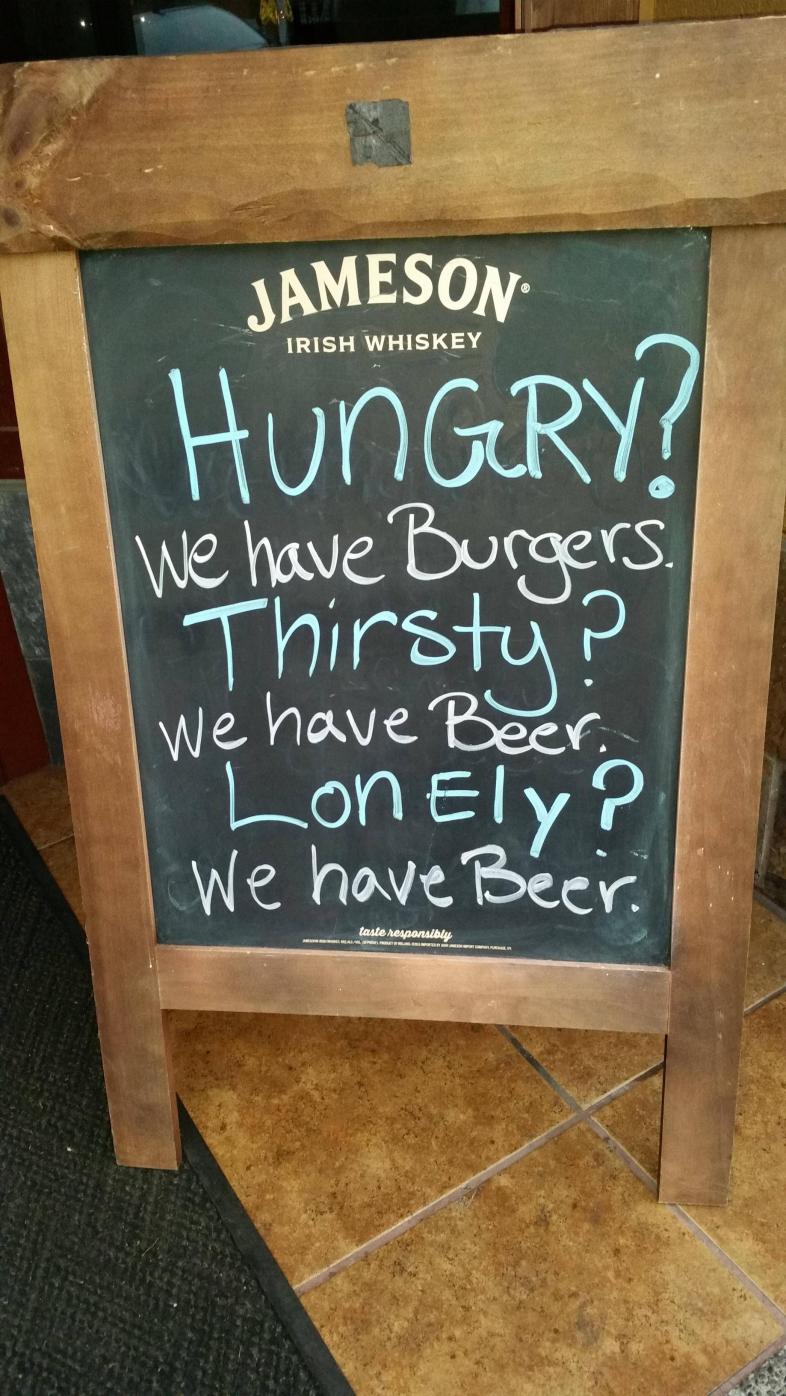 JAMESON®
IRISH WHISKEY
HUnGRY?
We have Burgers.
Thirsty?
We have Beer.
LonEly?
We have Beer.
taste responsibly